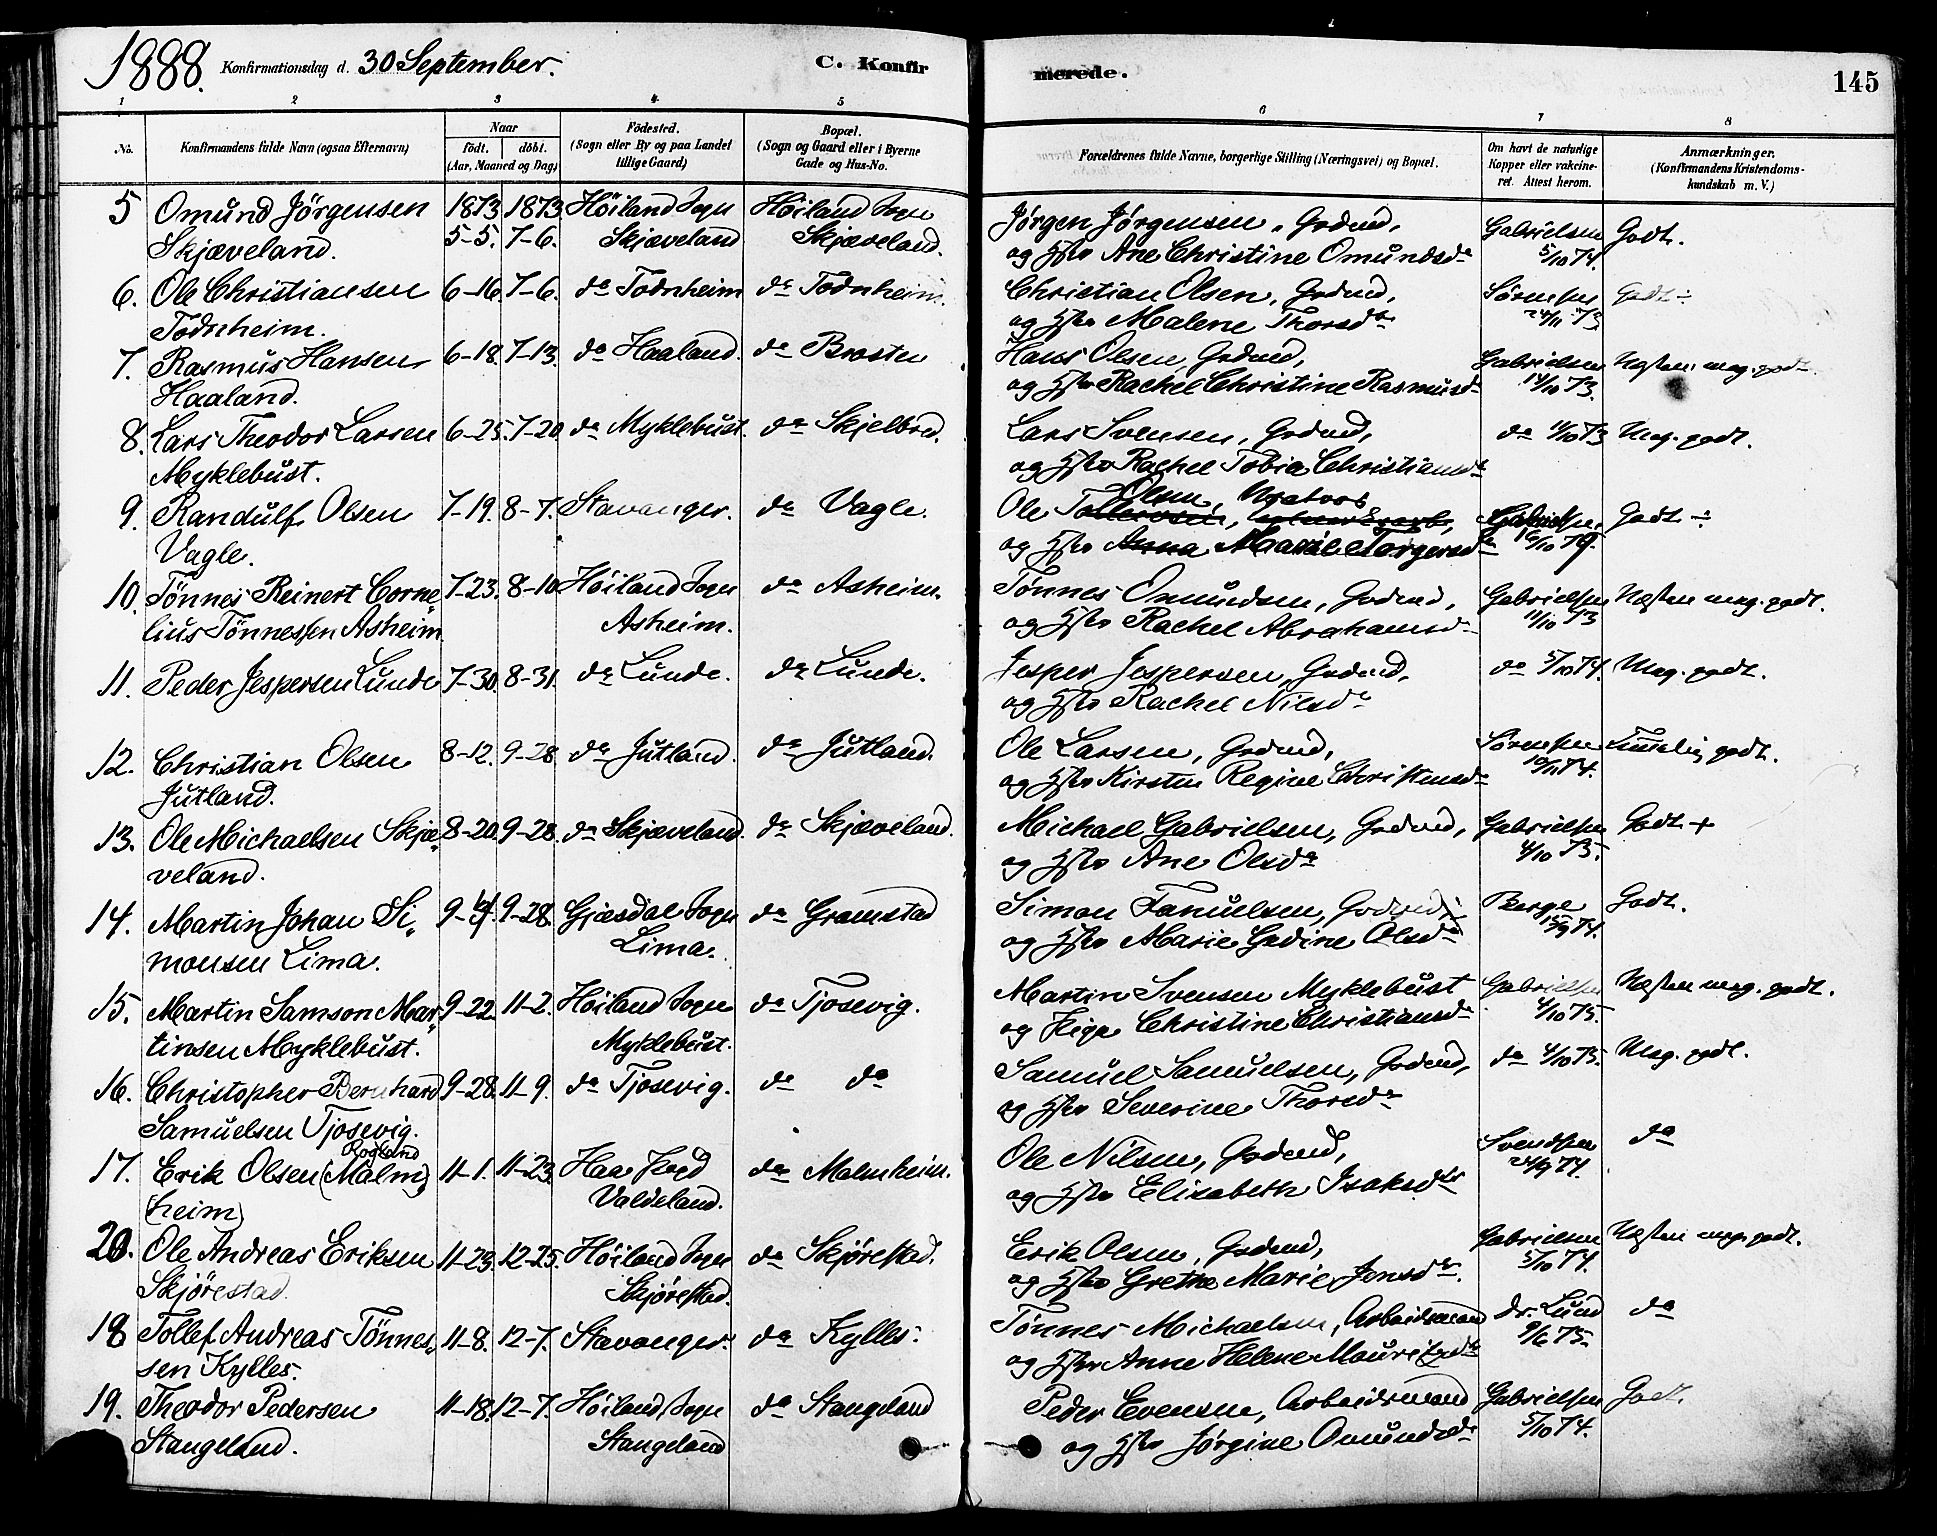 1888. Konfirmationsdag d. 30 September. C. Konfirmerede. 145
1 2 3 4 5 6 7 8
No. Konfirmandens fulde Navn (ogsaa Efternavn) Naar födt. döbt. (Aar, Maaned og Dag) Födested. (Sogn eller By og paa Landet tillige Gaard) Bopæl. (Sogn og Gaard eller i Byerne Gade og Hus-No. Forældrenes fulde Navne, borgerlige Stilling (Næringsvei) og Bopæl. Om havt de naturlige Kopper eller vakcineret. Attest herom. Anmærkninger. (Konfirmandens Kristendomskundskab m. V.)
5 Omund Jörgensen 1873 1873 Höiland Sogn Höiland Sogn Jörgen Jörgensen, Grdmd, Gabrielsen Godt.
Skjæveland. 5-5. 7-6. Skjæveland Skjæveland. og Hstr Ane Christine Omundsdr 5/10 74.
6. Ole Christiansen 6-16. 7-6. do Todnheim do Todnheim. Christian Olsen, Grdmd, Sörensen Godt ÷
Todnheim. og Hstr Malene Thorsdr 24/11 73
7. Rasmus Hansen 6-18. 7-13. do Haaland. do Brosten Hans Olsen, Grdmd, Gabrielsen Næsten meg. godt.
Haaland. og Hstr Rachel Christine Rasmusdr 14/10 73.
8. Lars Theodor Larsen 6-25. 7-20. do Myklebust. do Skjelbred. Lars Svensen, Grdmd, do 11/10 73 Meg. godt.
Myklebust. og Hstr Rachel Tobia Christiansdr
9. Randulf Olsen 7-19. 8-7. Stavanger. do Vagle. Ole Olsen Godt ÷
Vagle. og Hstr Torgersdr 16/10 79.
10. Tönnes Reinert Corne- 7-23. 8-10. Höiland Sogn do Asheim. Tönnes Omundsen, Grdmd, Gabrielsen Næsten meg. godt.
lius Tönnessen Asheim Asheim. og Hstr Rachel Abrahamsdr 11/10 73
11. Peder Jespersen Lunde 7-30. 8-31. do Lunde. do Lunde. Jesper Jespersen, Grdmd, do 5/10 74. Meg. godt.
og Hstr Rachel Nilsdr
12. Christian Olsen 8-12. 9-28. do Jutland. do Jutland. Ole Larsen, Grdmd, Sörensen Temmelig godt.
Jutland. og Hstr Kirsten Regine Christensdr 10/11 74.
13. Ole Michaelsen Skjæ- 8-20. 9-28. do Skjæveland. do Skjæveland. Michael Gabrielsen, Grdmd, Gabrielsen Godt +
veland. og Hstr Ane Olsdr 4/10 75.
14. Martin Johan Si- 9-9. 9-28. Gjæsdal Sogn do Gramstad Simon Tanuelsen, Grdmd, Berge Godt.
monsen Lima. Lima. og Hstr Marie Gedine Olsdr 15/9 74.
15. Martin Samson Mar- 9-22. 11-2. Höiland Sogn do Tjosevig. Martin Svensen Myklebust Gabrielsen Næsten meg. godt.
tinsen Myklebust. Myklebust. og Pige Christine Christiansdr 4/10 75.
16. Christopher Bernhard 9-28. 11-9. do Tjosevig. do do Samuel Samuelsen, Grdmd, do 4/10 75. Meg. godt.
Samuelsen Tjosevig. og Hstr Severine Thorsdr
Rogland
17. Erik Olsen (Malm- 11-1. 11-23. Haa Sogn do Malmheim. Ole Nilsen, Grdmd, Svendsen do
heim) Valdeland. og Hstr Elisabeth Isaksdtr 24/9 74.
20. Ole Andreas Eriksen 11-23. 12-25. Höiland Sogn do Skjörestad. Erik Olsen, Grdmd, Gabrielsen Næsten meg. godt.
Skjörestad. Skjörestad. og Hstr Grethe Marie Jonsdtr. 5/10 74.
18 Tollef Andreas Tönnes- 11-8. 12-7. Stavanger. do Kylles. Tönnes Michaelsen, Arbeidsmand dr. Lund do
sen Kylles. og Hstr Anne Helene Mauritzdr 9/6 75.
19. Theodor Pedersen 11-18. 12-7. Höiland Sogn do Stangeland Peder Evensen, Arbeidsmand Gabrielsen Godt.
Stangeland. Stangeland og Hstr Jörgine Omundsdr 5/10 74.